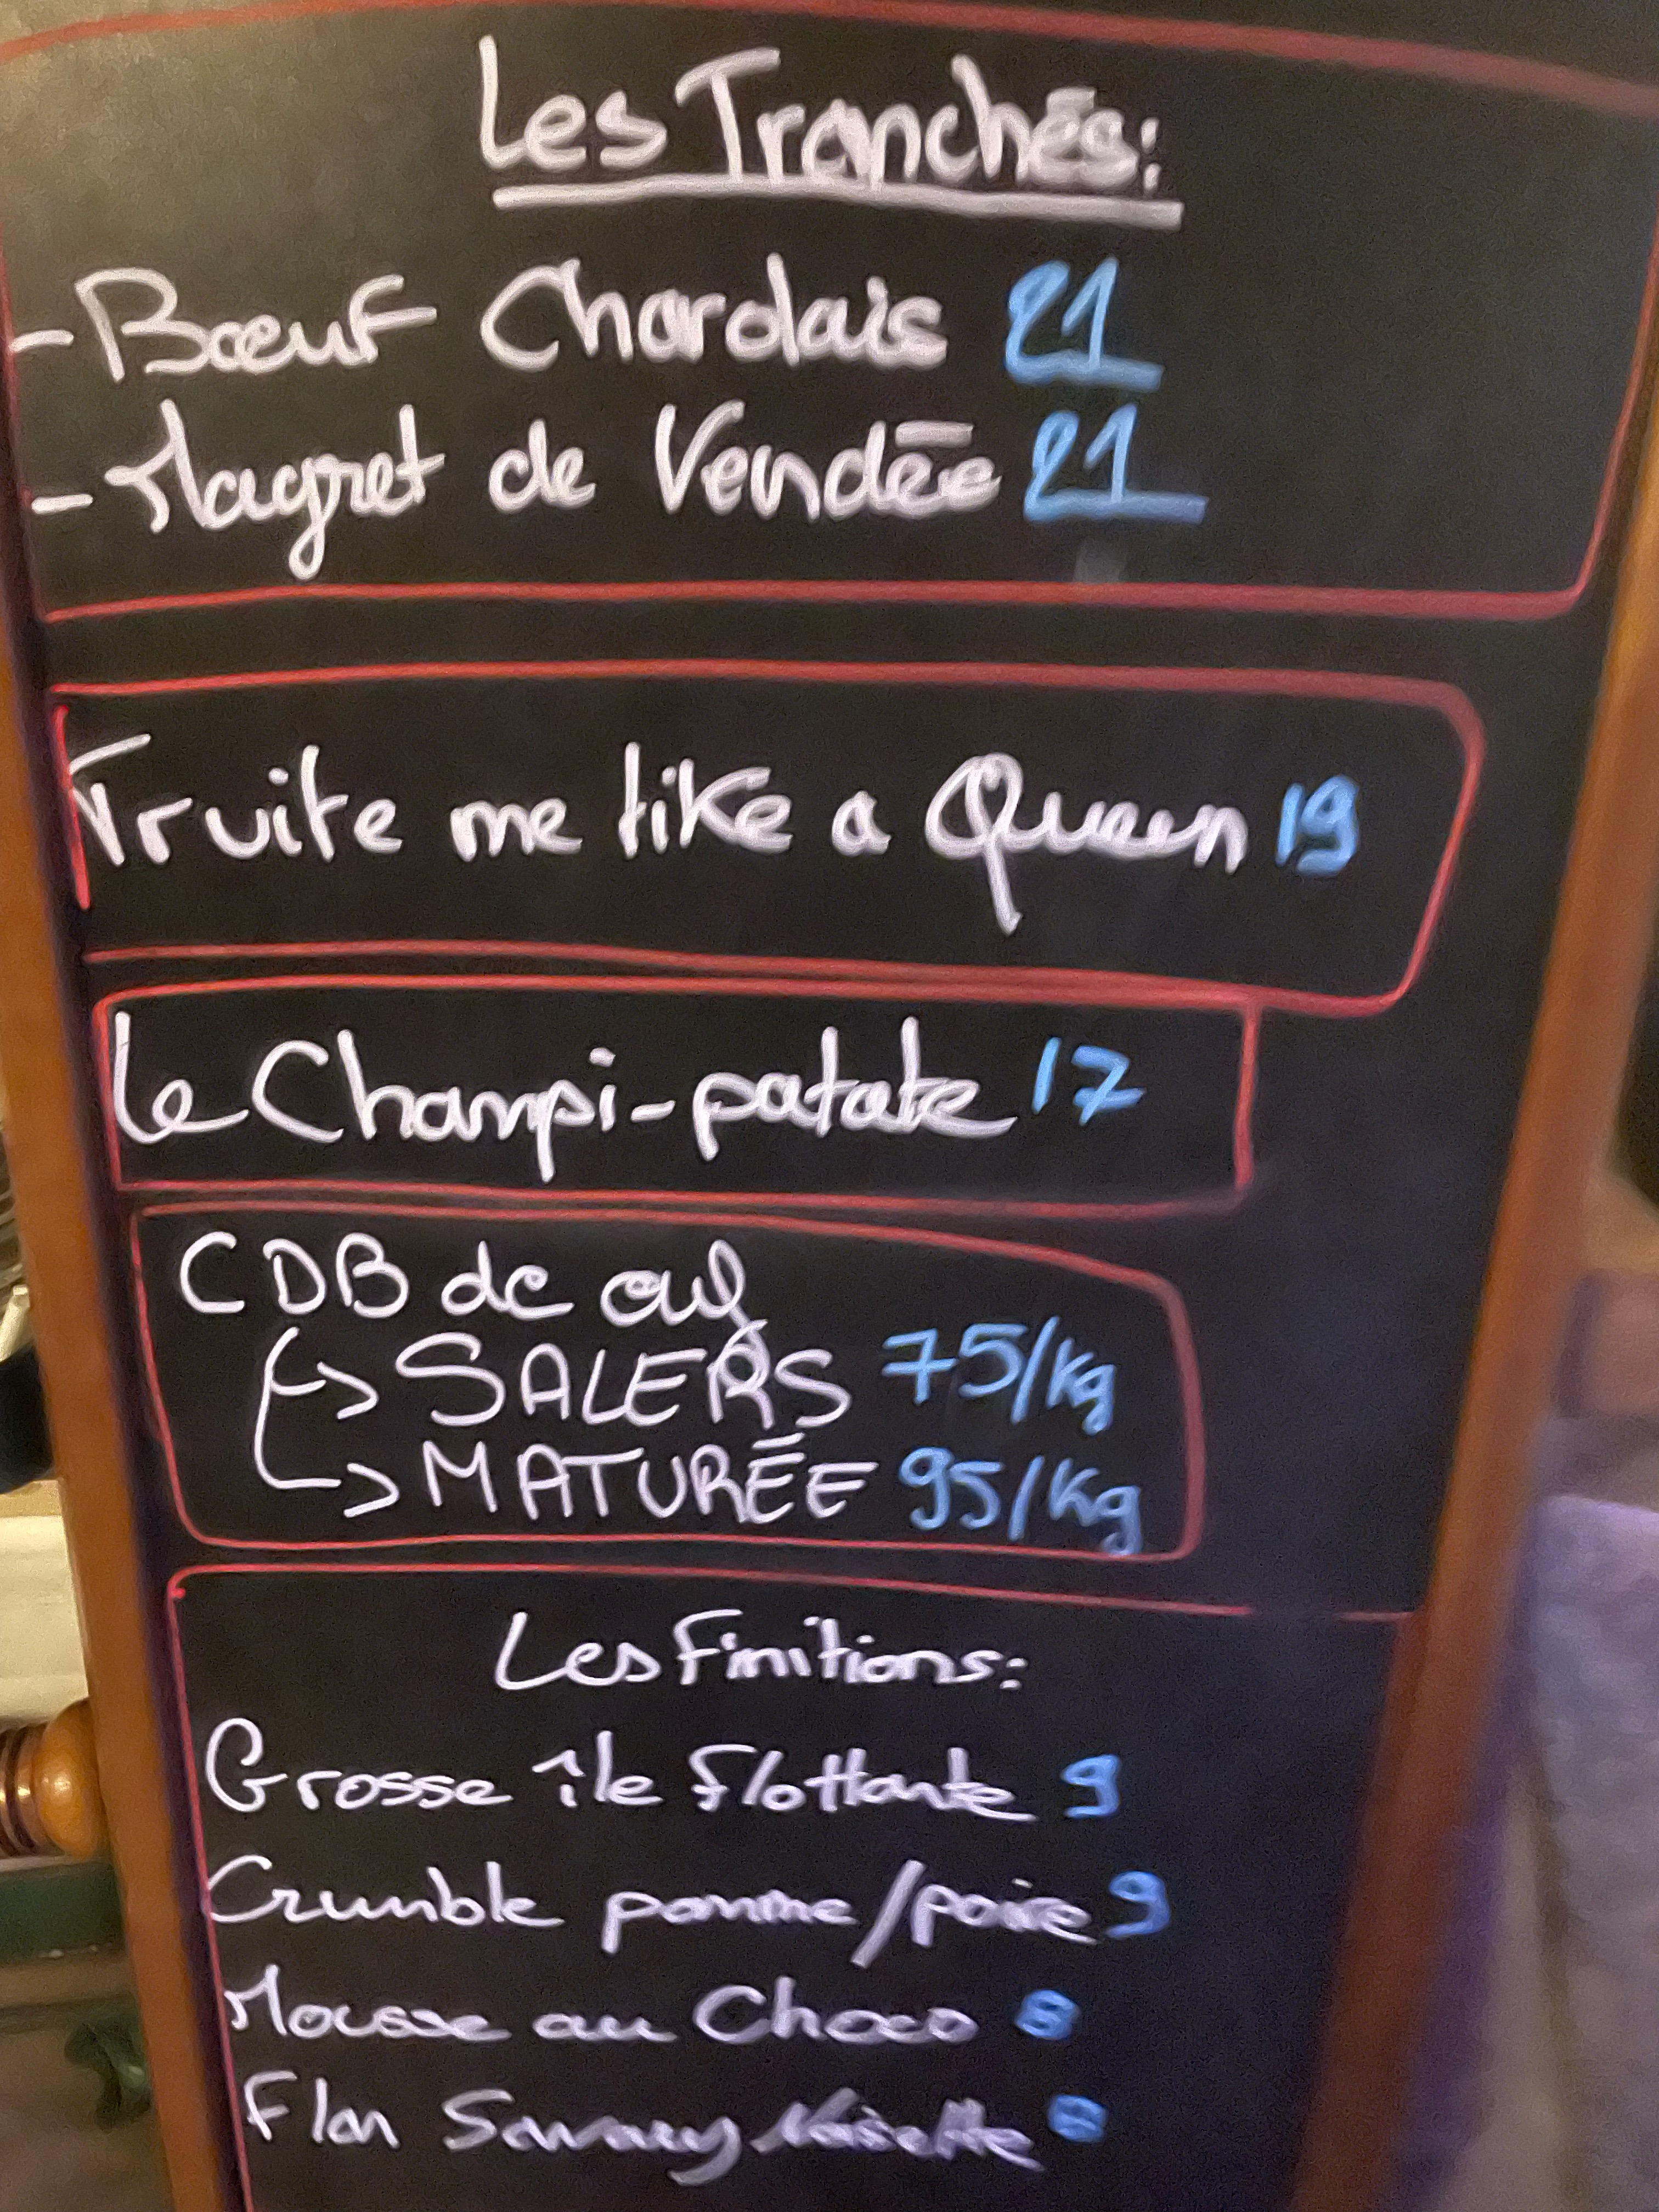 Les Tranchés:
- Bœuf Charolais 21
- Magret de Vendée 21
Truite me like a Queen 19
Le Champi-patate 17
CDB de cul
SALERS 75/kg
MATURÉE 95/kg
Les Finitions:
Grosse île flottante 9
Crumble pomme/poire 9
Mousse au Choco 8
Flan Noisette 8